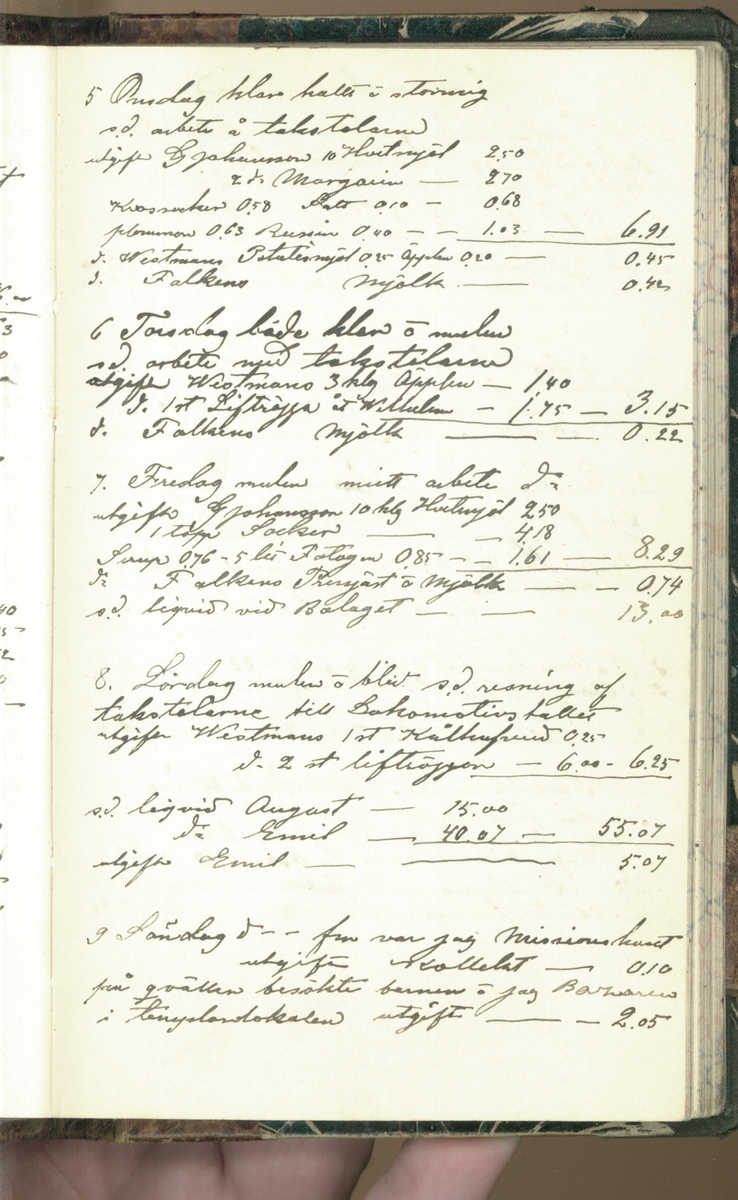 5 Onsdag klar kallt o stormig
s.d. arbete å takstolarne
utgift G Johansson 10 Hvetmjöl 2.50
2 d: Margarin — 2.70
Krossocker 0.58 Salt 0.10 - 0.68
plommon 0.63 Russin 0.40 - - 1.03 — 6.91
d. Westmans Potatismjöl 0.25 Äpplen 0.20 — 0.45
d. Falkens Mjölk — 0.42
6 Torsdag både klar o mulen
s.d. arbete med takstolarne
utgifter Westmans 3 hlg Äpplen — 1.40
d. 1 st Liftröjja åt Wilhelm - 1.75 — 3.15
d. Falkens Mjölk — — 0.22
7. Fredag mulen mitt arbete d:o
utgifter G Johansson 10 hlg Hvetmjöl 2.50
1 topp Socker — - 4.18
Sirup 0.76 - 5 lit Fotogen 0.85 - - 1.61 — 8.29
d:o Falkens Pressjäst o Mjölk — - 0.74
s.d. liqvid vid Bolaget — — 13.00
8. Lördag mulen o blid s.d. resning af
takstolarne till Lokomotivstallet
utgifter Westmans 1 st 0.25
d. 2 st liftröjjor — 6.00 - 6.25
s.d. liqvid August — 15.00
d:o Emil — 40.07 — 55.07
utgift Emil — — 5.07
9 Söndag d - - fm var jag Missionshuset
utgift Kollekt — 0.10
på qvällen besökte barnen o jag Basaren
i templarlokalen utgift — - 2.05